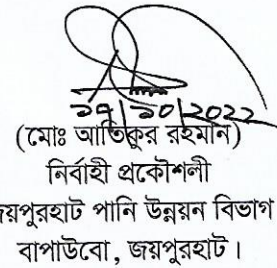 ২৭/১০/2022
(মোঃ আতিকুর রহমান)
নির্বাহী প্রকৌশলী
জয়পুরহাট পানি উন্নয়ন বিভাগ
বাপাউবো, জয়পুরহাট।